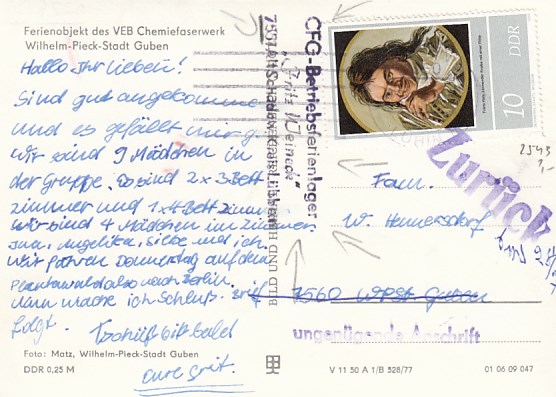 Ferienobjekt des VEB Chemiefaserwerk
Wilhelm-Pieck-Stadt Guben
Hallo Ihr lieben!
Sind gut angekommen
und es gefällt mir g
Wir sind 9 Mädchen in
der Gruppe. So sind 2x3Bett
zimmer und 1x4Bett Zimm
Wir sind 4 Mädchen im Zimmer
Angelika, Silke und ich.
Wir fahren Donnerstag auf dem
also nach Berlin.
Nun mache ich Schluß. Brief
folgt. Tschüß bis bald
eure Grit.
Foto: Matz, Wilhelm-Pieck-Stadt Guben
DDR 0,25 M
V 11 50 A 1/B 528/77
01 06 09 047
BILD UND HEIMAT
CFG-Betriebsferienlager
"Fritz Weineck"
7551 Alt Schadow
10 DDR
Zurück
2543
1,-
Fam.
W. Hennersdorf
7560 WPSt. Guben
ungenügende Anschrift